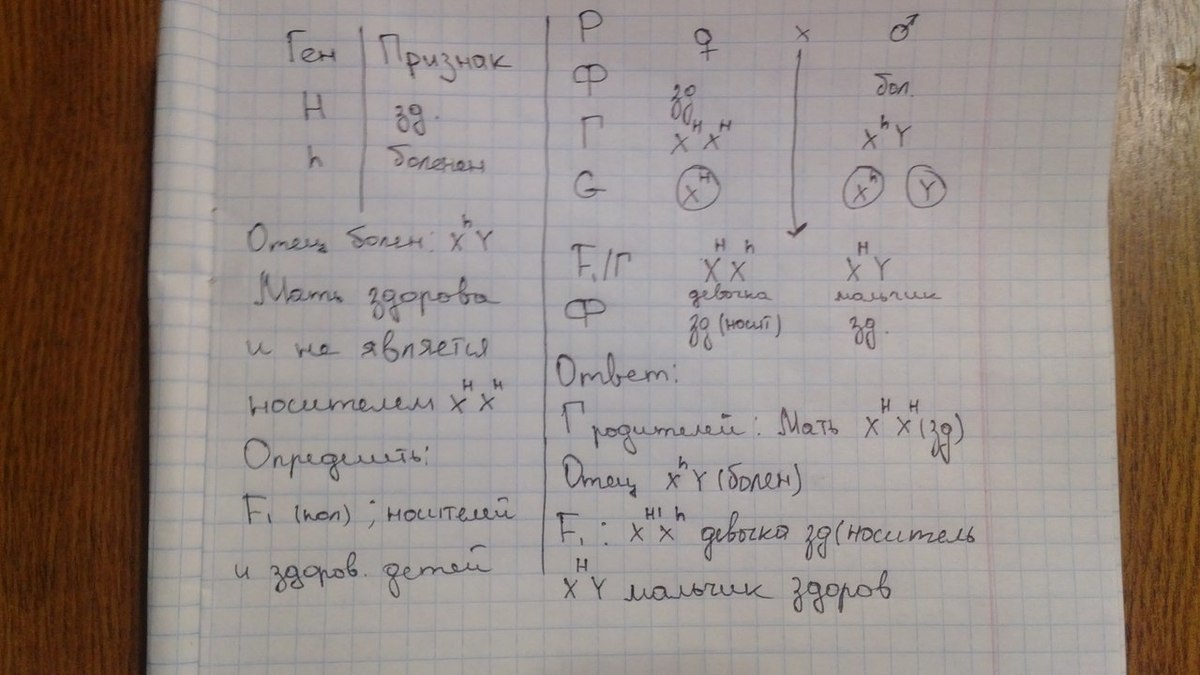 Ген Признак
H зд.
h боленен
Отец болен: XʰY
Мать здорова
и не является
носителем XᴴXᴴ
Определить:
F₁ (пол) ; носителей
и здоров. детей
P ♀ x ♂
Ф зд бол.
Г XᴴXᴴ XʰY
G Xᴴ Xʰ Y
F₁/Г XᴴXʰ XᴴY
девочка мальчик
Ф зд (носит) зд.
Ответ:
Г родителей: Мать XᴴXᴴ (зд)
Отец XʰY (болен)
F₁ : XᴴXʰ девочка зд (носитель
XᴴY мальчик здоров